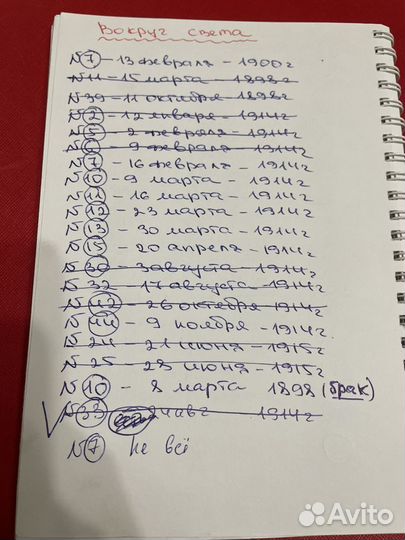 Вокруг света
N7 - 13 февраля - 1900г
N11 - 15 марта - 1898г
N39 - 11 октября - 1898г
N2 - 12 января - 1914г
N5 - 2 февраля - 1914г
N6 - 9 февраля - 1914г
N7 - 16 февраля - 1914г
N10 - 9 марта - 1914г
N11 - 16 марта - 1914г
N12 - 23 марта - 1914г
N13 - 30 марта - 1914г
N15 - 20 апреля - 1914г
N30 - 3 августа - 1914г
N32 - 17 августа - 1914г
N42 - 26 октября - 1914г
N44 - 9 ноября - 1914г
N24 - 21 июня - 1915г
N25 - 28 июня - 1915г
N10 - 8 марта 1898 (брак)
N33 24 авг 1914г
N7 не всё
Avito